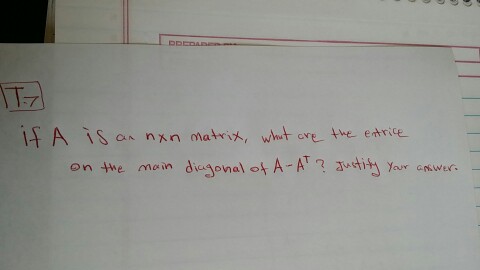 PREPARED
T.7
if A is an nxn matrix, what are the entrice
on the main diagonal of A-Aᵀ? Justify Your answer.